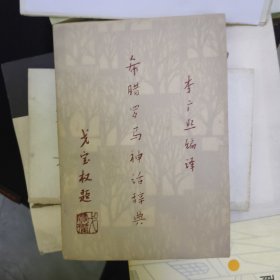 李广熙编译
希腊罗马神话辞典
戈宝权题